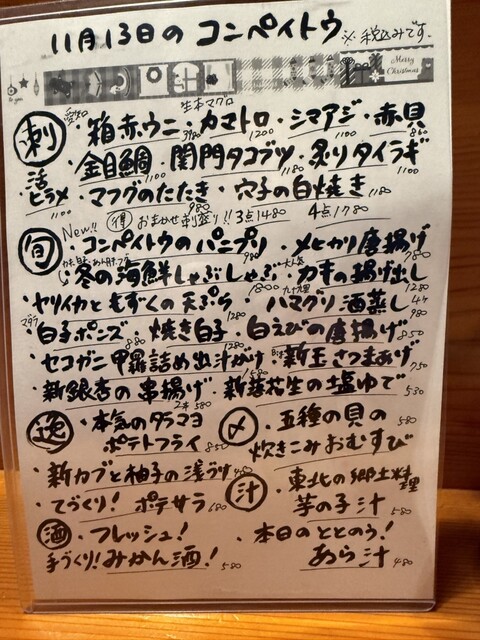 11月13日のコンペイトウ ※税込みです.
to you
Merry Christmas
刺 愛知 箱赤ウニ 3980 ・生本マグロ カマトロ 1200 ・シマアジ 1100 ・赤貝 860
・金目鯛 1100 ・関門タコブツ 780 ・炙りタイラギ 1100
活ヒラメ 1100 ・マフグのたたき 980 ・穴子の白焼き 1180
得 おまかせ刺盛り!! 3点1480 4点1780
旬 New!! ・コンペイトウのパニプリ 980 ・メヒカリ唐揚げ 780
・冬の海鮮しゃぶしゃぶ 1800 ・カキの揚げ出し 1280
・ヤリイカともずくの天ぷら 980 ・九十九里 ハマグリ酒蒸し 4ケ 980
マダラ 白子ポンズ 1280 ・焼き白子 1280 ・白えびの唐揚げ 850
・セコガニ甲羅詰め出汁がけ 1380 ・新玉さつまあげ 750
・新銀杏の串揚げ 2本 580 ・新落花生の塩ゆで 530
逸 ・本気のタラマヨポテトフライ 850
・新カブと柚子の浅づけ
・てづくり!ポテサラ 680
〆 ・五種の貝の 580
炊きこみおむすび
汁 ・東北の郷土料理
芋の子汁 580
・本日のととのう!
あら汁 480
酒 ・フレッシュ!
手づくり!みかん酒! 580